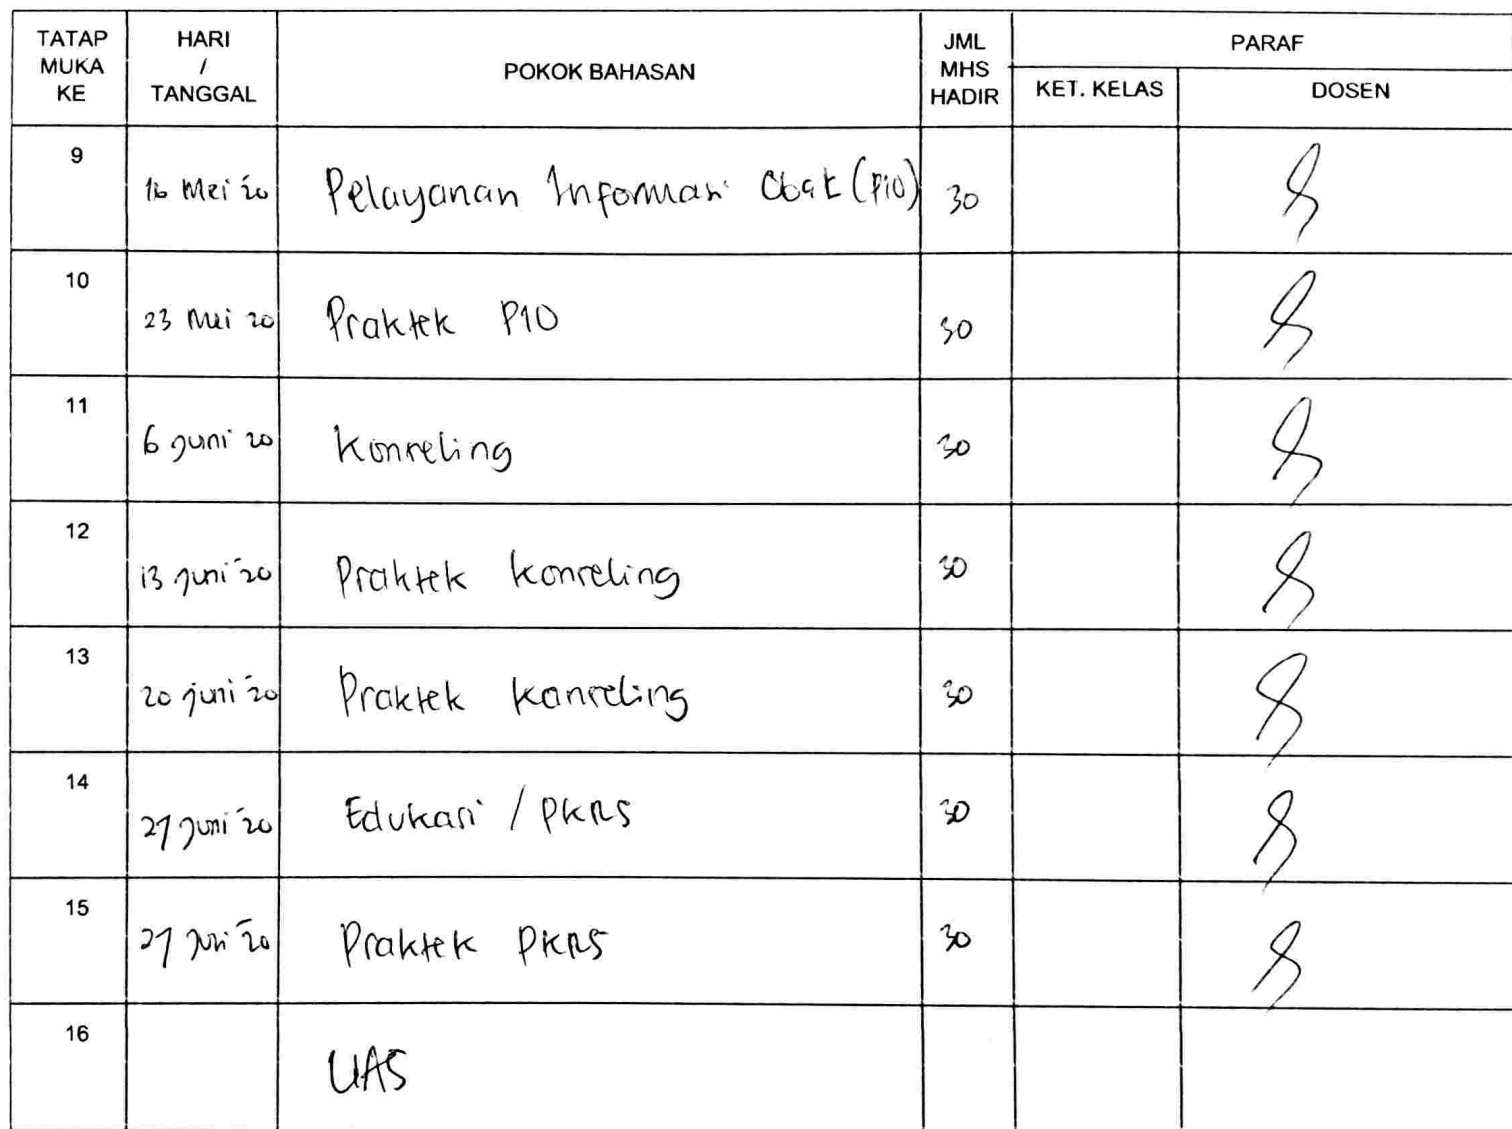 TATAP MUKA KE HARI / TANGGAL POKOK BAHASAN JML MHS HADIR PARAF
KET. KELAS DOSEN
9 16 Mei '20 Pelayanan Informasi Obat (PIO) 30
10 23 Mei 20 Praktek PIO 30
11 6 Juni '20 Konseling 30
12 13 Juni '20 Praktek Konseling 30
13 20 Juni '20 Praktek Konseling 30
14 27 Juni '20 Edukasi / PKRS 30
15 27 Juni '20 Praktek PKRS 30
16 UAS